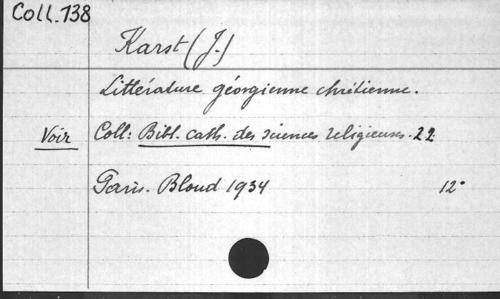 Coll.138
Karst (J.)
Littérature géorgienne chrétienne.
Voir Coll: Bibl. cath. des sciences religieuses. 22
Paris. Bloud 1934 12°